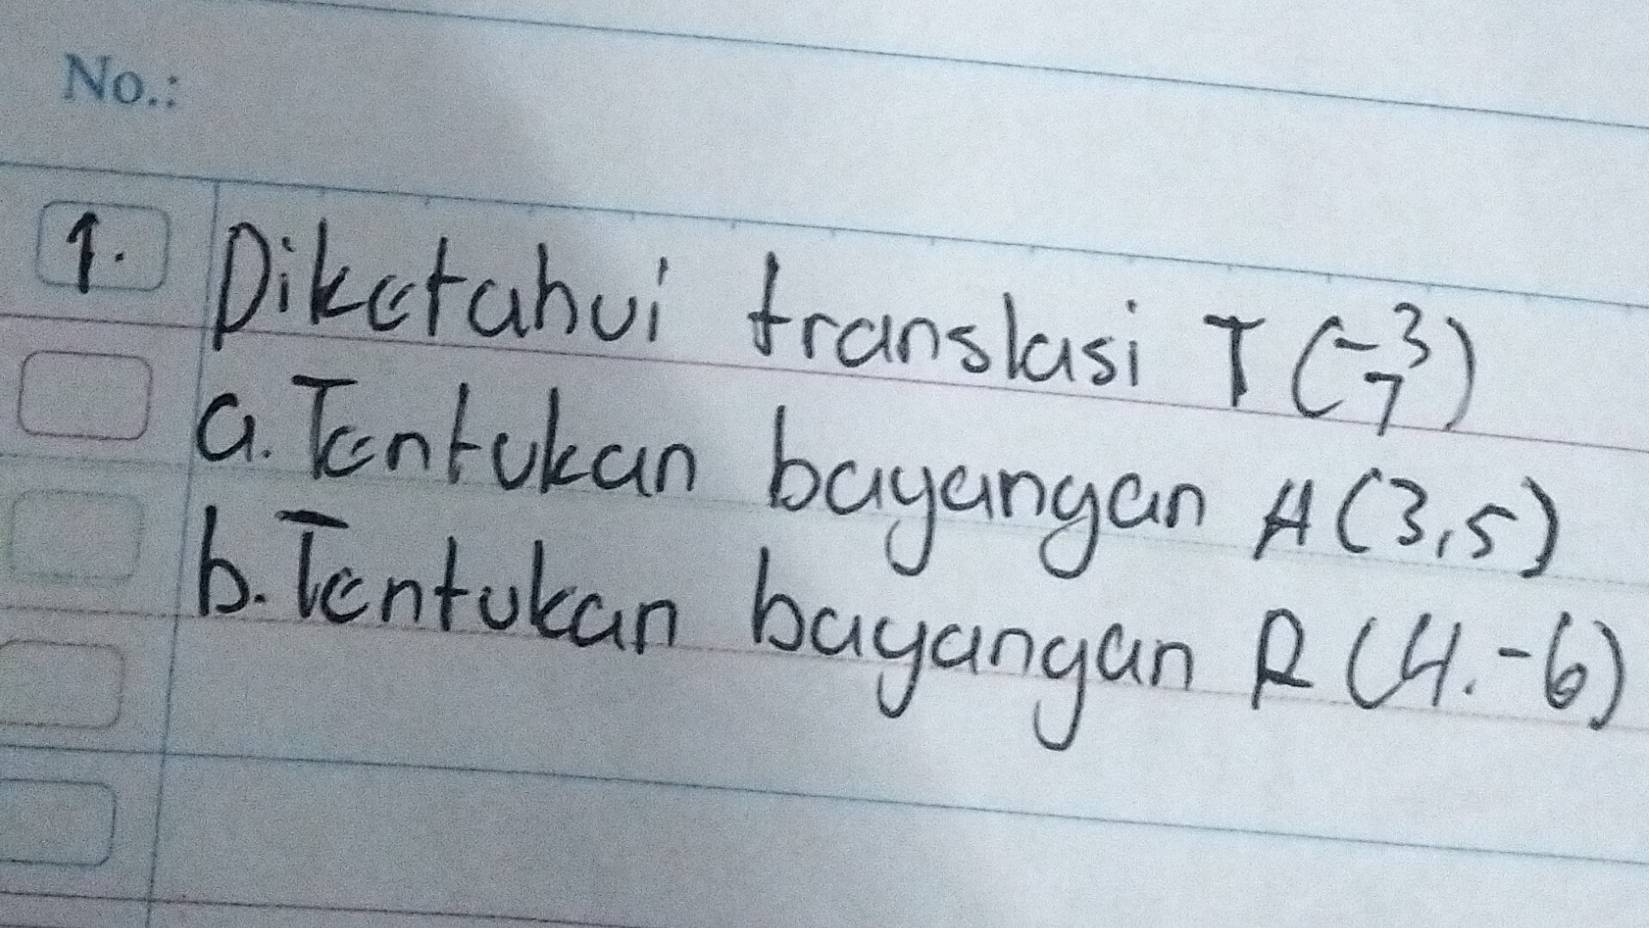 No.:
1. Diketahui translasi T (-3 7)
a. Tentukan bayangan A (3,5)
b. Tentukan bayangan R (4.-6)